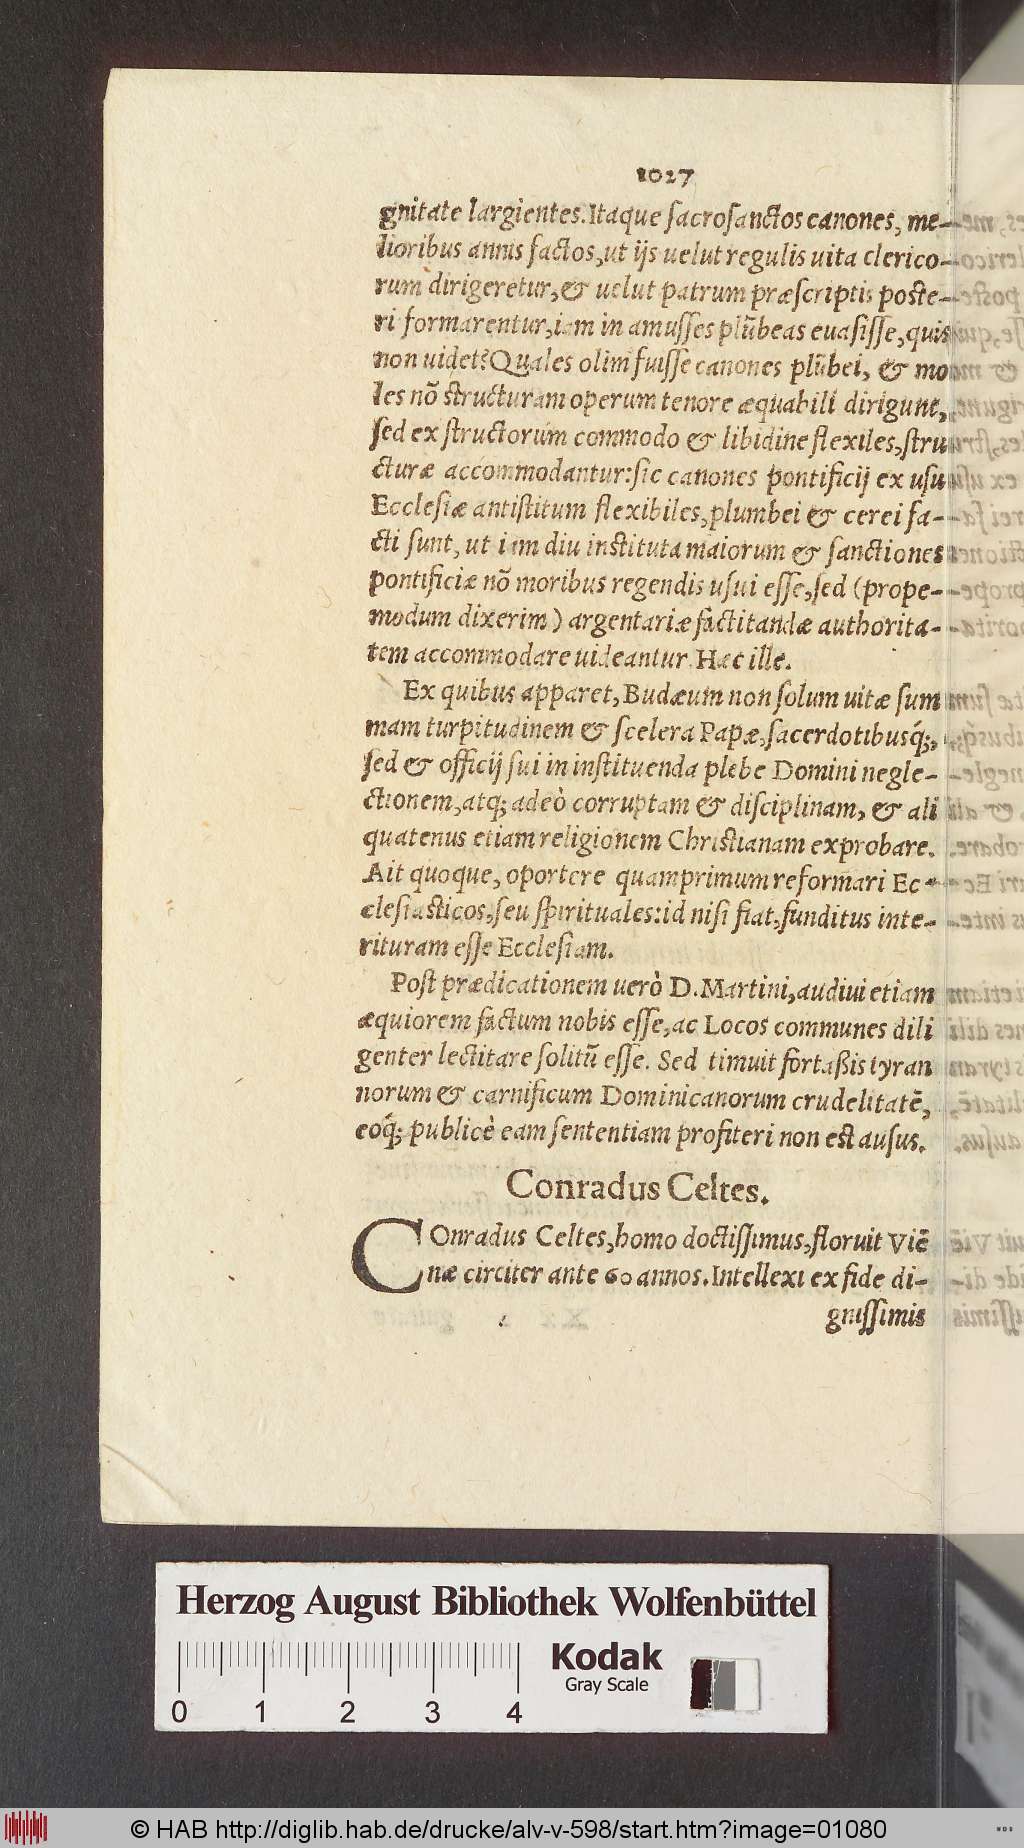 1027
gnitate largientes. Itaque sacrosanctos canones, me-
lioribus annis factos, ut ijs uelut regulis uita clerico-
rum dirigeretur, & uelut patrum præscriptis poste-
ri formarentur, iam in amusses plũbeas euasisse, quis
non uidet? Quales olim fuisse canones plũbei, & mo
les nõ structuram operum tenore æquabili dirigunt,
sed ex structorum commodo & libidine flexiles, stru
cturæ accommodantur: sic canones pontificij ex usu
Ecclesiæ antistitum flexibiles, plumbei & cerei fa-
cti sunt, ut iam diu instituta maiorum & sanctiones
pontificiæ nõ moribus regendis usui esse, sed (prope-
modum dixerim) argentariæ factitandæ authorita-
tem accommodare uideantur. Hæc ille.
Ex quibus apparet, Budæum non solum uitæ sum
mam turpitudinem & scelera Papæ, sacerdotibusq́;,
sed & officij sui in instituenda plebe Domini negle-
ctionem, atq; adeò corruptam & disciplinam, & ali
quatenus etiam religionem Christianam exprobare.
Ait quoque, oportere quamprimum reformari Ec-
clesiasticos, seu spirituales: id nisi fiat, funditus inte-
rituram esse Ecclesiam.
Post prædicationem uerò D. Martini, audiui etiam
æquiorem factum nobis esse, ac Locos communes dili
genter lectitare solitũ esse. Sed timuit fortaßis tyran
norum & carnificum Dominicanorum crudelitatẽ,
eoq́; publicè eam sententiam profiteri non est ausus.
Conradus Celtes.
COnradus Celtes, homo doctissimus, floruit Viẽ
næ circiter ante 60 annos. Intellexi ex fide di-
gnissimis
Herzog August Bibliothek Wolfenbüttel
Kodak
Gray Scale
0 1 2 3 4
© HAB http://diglib.hab.de/drucke/alv-v-598/start.htm?image=01080